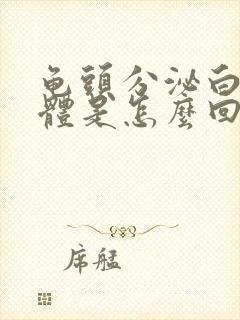 龟頭分泌白
體是怎麼回
席艋